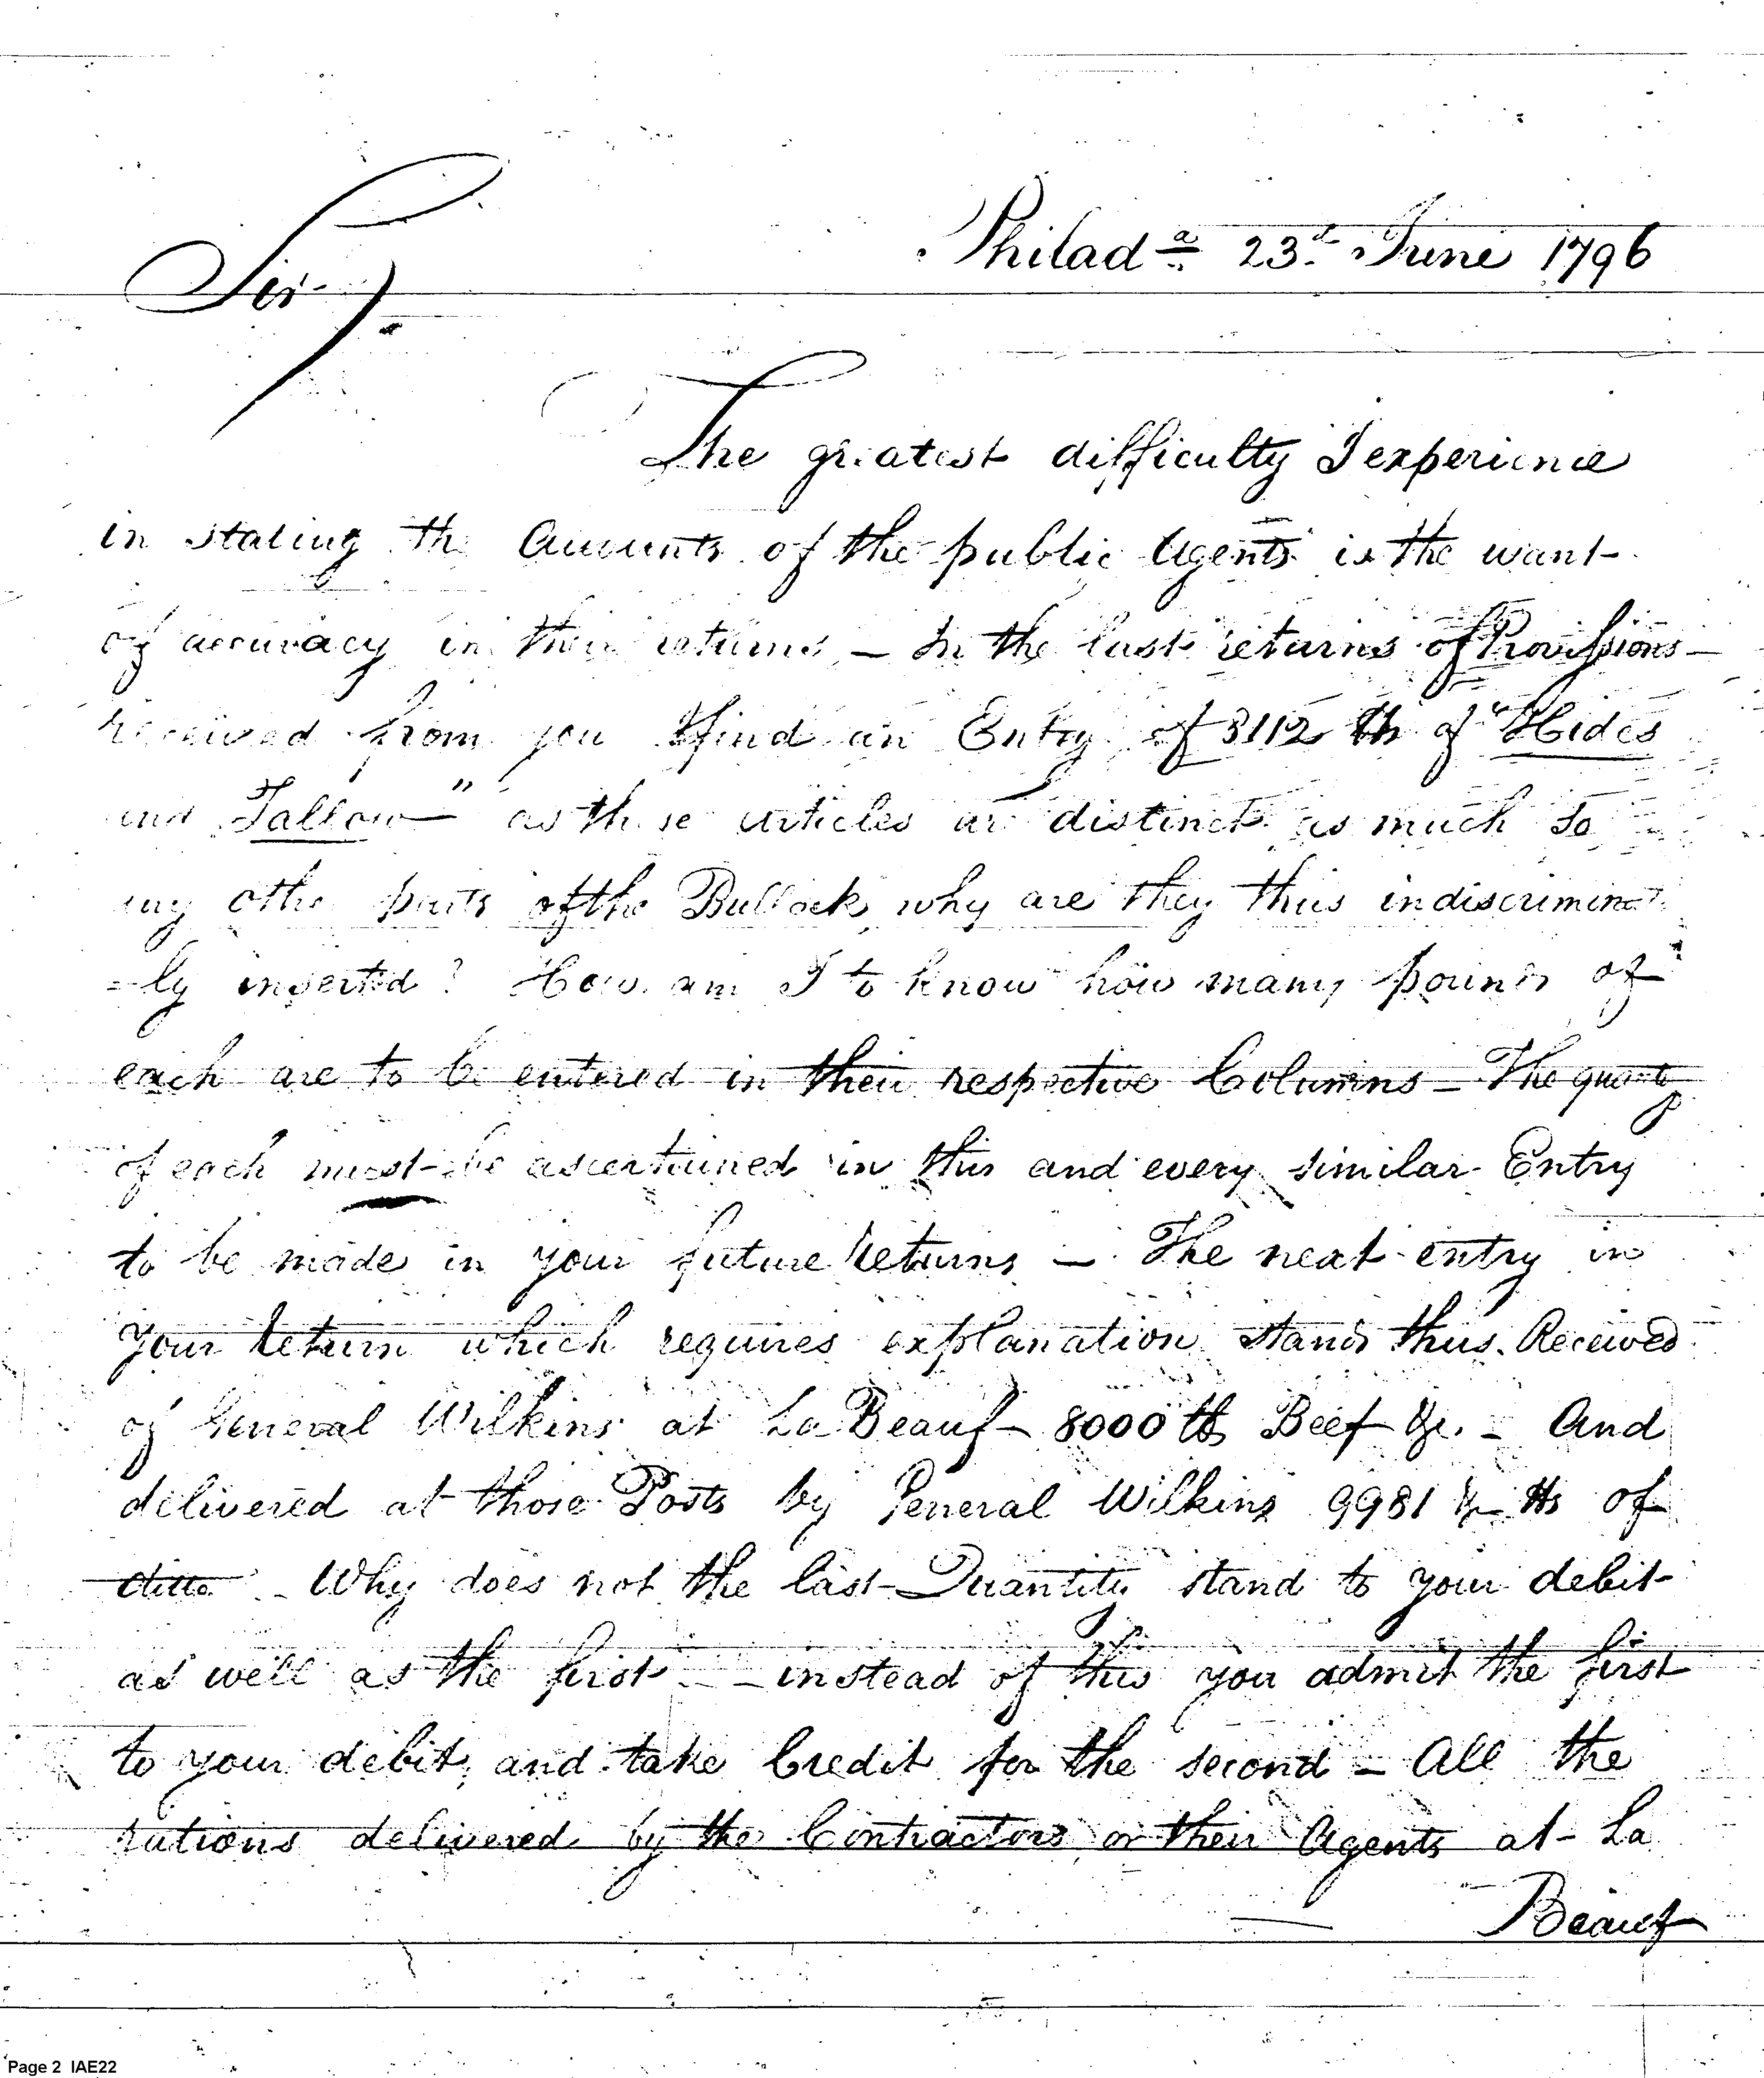 Philad.a 23d June 1796
Sir
The greatest difficulty I experience
in stating the Accounts of the public Agents is the want
of accuracy in their returns — In the last returns of Provissions
received from you I find an Entry of 3112 lb of "Hides
and Tallow" as these articles are distinct as much so
any other parts of the Bullock, why are they thus indiscriminate
=ly inserted? How am I to know how many pounds of
each are to be entered in their respective Columns — The quantity
of each must be ascertained in this and every similar Entry
to be made in your future returns — The next entry in
your return which requires explanation stands thus. Received
of General Wilkins at La Beauf — 8000 lbs Beef &c. — And
delivered at those Posts by General Wilkins 9981 lbs of
ditto — Why does not the last Quantity stand to your debit
as well as the first — instead of this you admit the first
to your debit, and take Credit for the second — All the
rations delivered by the Contractors or their Agents at La
Beauf
Page 2 IAE22